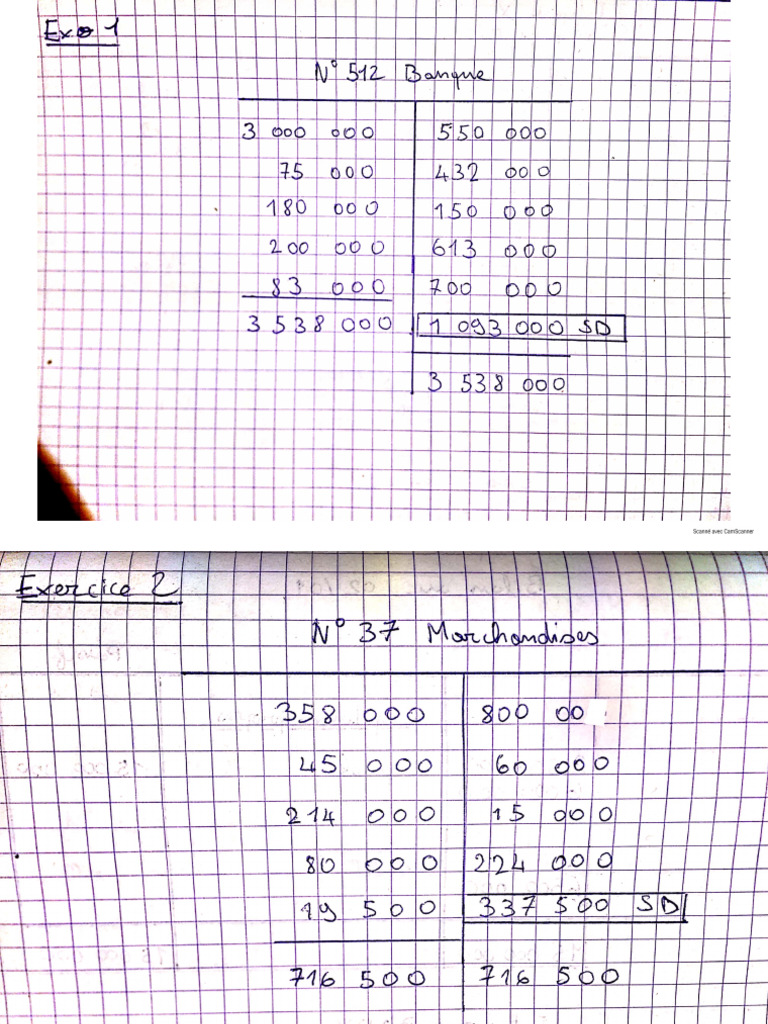 Exo 1
N° 512 Banque
3 000 000 550 000
75 000 432 000
180 000 150 000
200 000 613 000
83 000 700 000
3 538 000 1 093 000 SD
3 538 000
Scanné avec CamScanner
Exercice 2
N° 37 Marchandises
358 000 800 00
45 000 60 000
214 000 15 000
80 000 224 000
19 500 337 500 SD
716 500 716 500